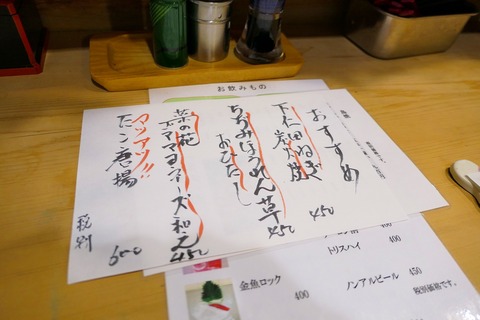 お飲みもの
おすすめ
下仁田ねぎ
炭火焼
450
ちぢみほうれん草
おひたし
450
菜の花
マヨネーズ和え
450
アツアツ!!
たこ唐揚
600
税別
400
トリスハイ
400
金魚ロック
400
ノンアルビール
450
税別価格です。